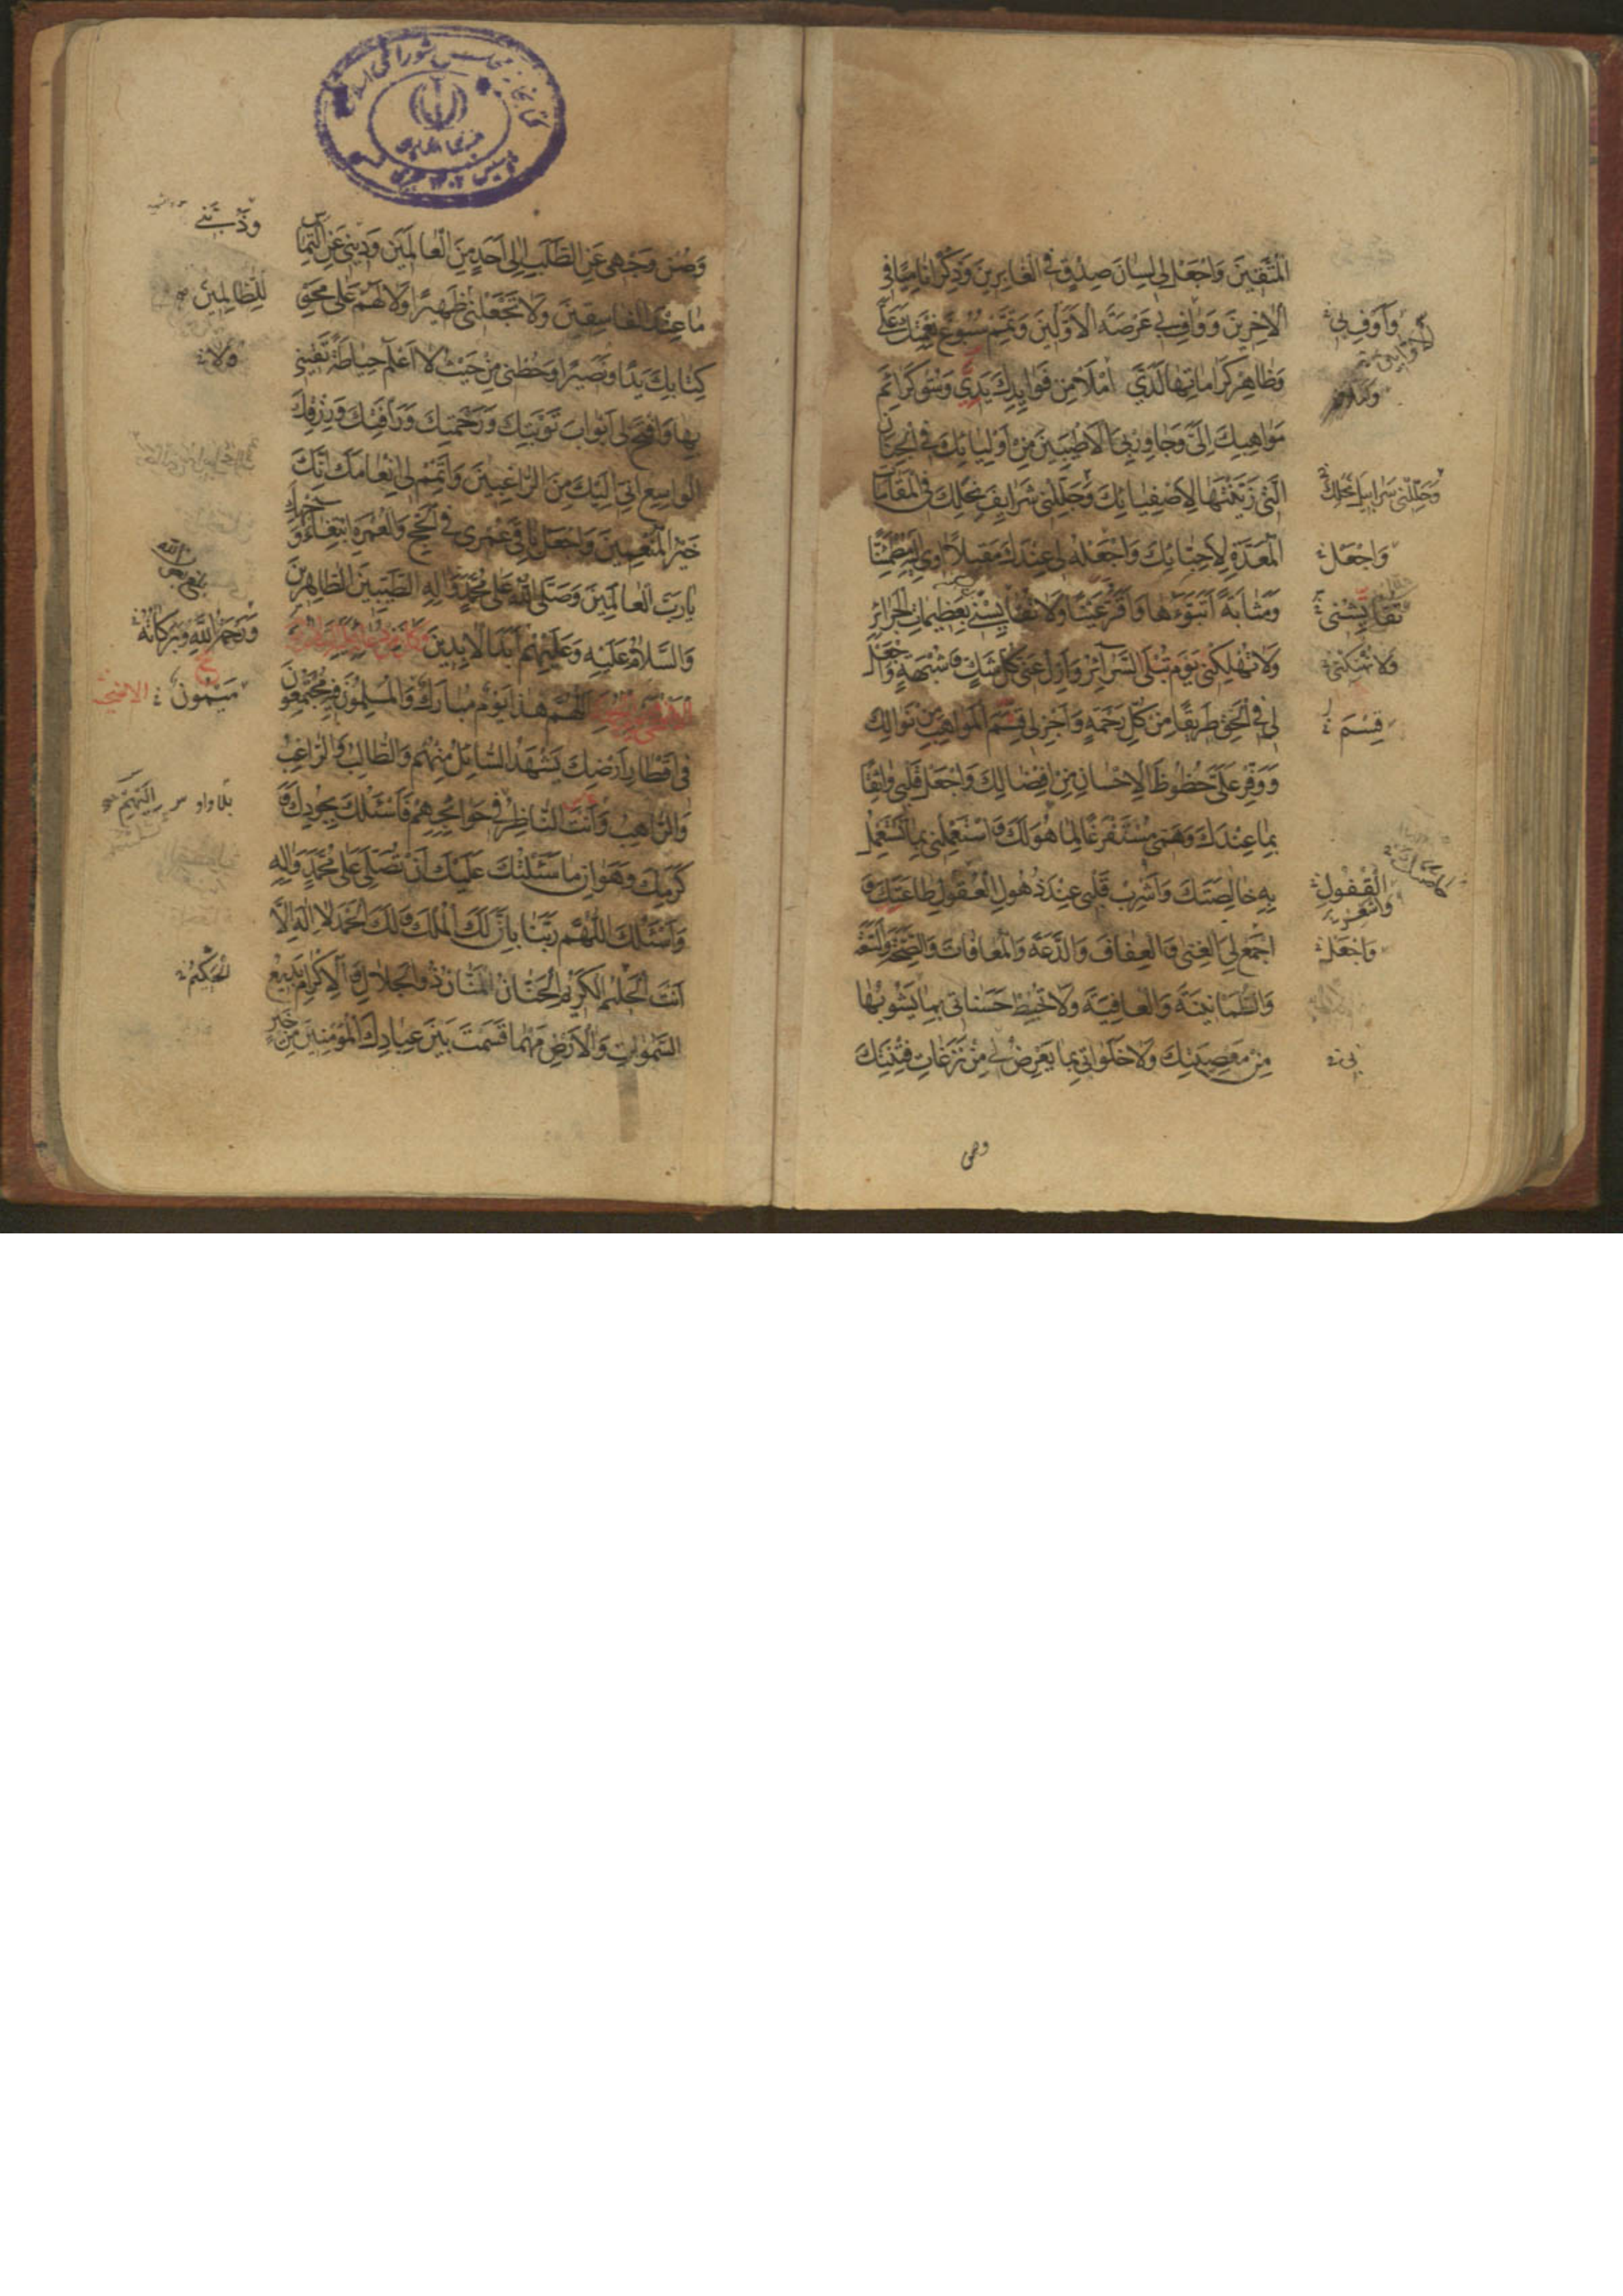 المتقين واجعل لي لسان صدق في الغابرين وذكرا ناميا في
الاخرين وواف بي عرصة الاولين وتمم سبوغ نعمتك علي
وظاهر كراماتها لدي املأ من فوايدك يدي وسق كرائم
مواهبك الي وجاور بي الاطيبين من اوليائك في الجنان
التي زينتها لاصفيائك وجللني شرايف نحلك في المقامات
المعدة لاحبائك واجعل لي عندك مقيلا اوي اليه مطمئنا
ومثابة اتبوؤها واقر عينا ولا تقايسني بعظيمات الجرائر
ولا تهلكني يوم تبلى السرائر وازل عني كل شك وشبهة واجعل
لي في الحق طريقا من كل رحمة واجزل لي قسم المواهب من نوالك
ووفر علي حظوظ الاحسان من افضالك واجعل قلبي واثقا
بما عندك وهمي مستفرغا لما هو لك واستعملني بما تستعمل
به خالصتك واشرب قلبي عند ذهول العقول طاعتك و
اجمع لي الغنى والعفاف والدعة والمعافات والصحة والسعة
والطمانينة والعافية ولا تحبط حسناتي بما يشوبها
من معصيتك ولا خلواتي بما يعرض لي من نزغات فتنتك
واوف بي
وجللني سرابيل نحلك
واجعل
ولا تهتكني
قسم
القفول
واجعل
بي
وصن
وصن وجهي عن الطلب الى احد من العالمين وديني عن التماس
ما عند الفاسقين ولا تجعلني ظهيرا ولا لهم على محو
كتابك يدا ونصيرا وحطني من حيث لا اعلم حياطة تقيني
بها وافتح لي ابواب توبتك ورحمتك ورأفتك ورزقك
الواسع اني اليك من الراغبين واتمم لي انعامك انك
خير المنعمين واجعل باقي عمري في الحج والعمرة ابتغاء وجهك
يا رب العالمين وصلى الله على محمد واله الطيبين الطاهرين
والسلام عليه وعليهم ابد الابدين وكان من دعائه عليه السلام يوم
الاضحى ويوم الجمعة اللهم هذا يوم مبارك والمسلمون فيه مجتمعون
في اقطار ارضك يشهد السائل منهم والطالب والراغب
والراهب وانت الناظر في حوائجهم فاسئلك بجودك و
كرمك وهوان ما سئلتك عليك ان تصلي على محمد واله
واسئلك اللهم ربنا بان لك الملك ولك الحمد لا اله الا
انت الحليم الكريم الحنان المنان ذو الجلال والاكرام بديع
السموات والارض مهما قسمت بين عبادك المؤمنين من خير
وذبني
للظالمين
ولا
ورحمة الله وبركاته
ميمون الاضحى
بلا واو
الحكيم